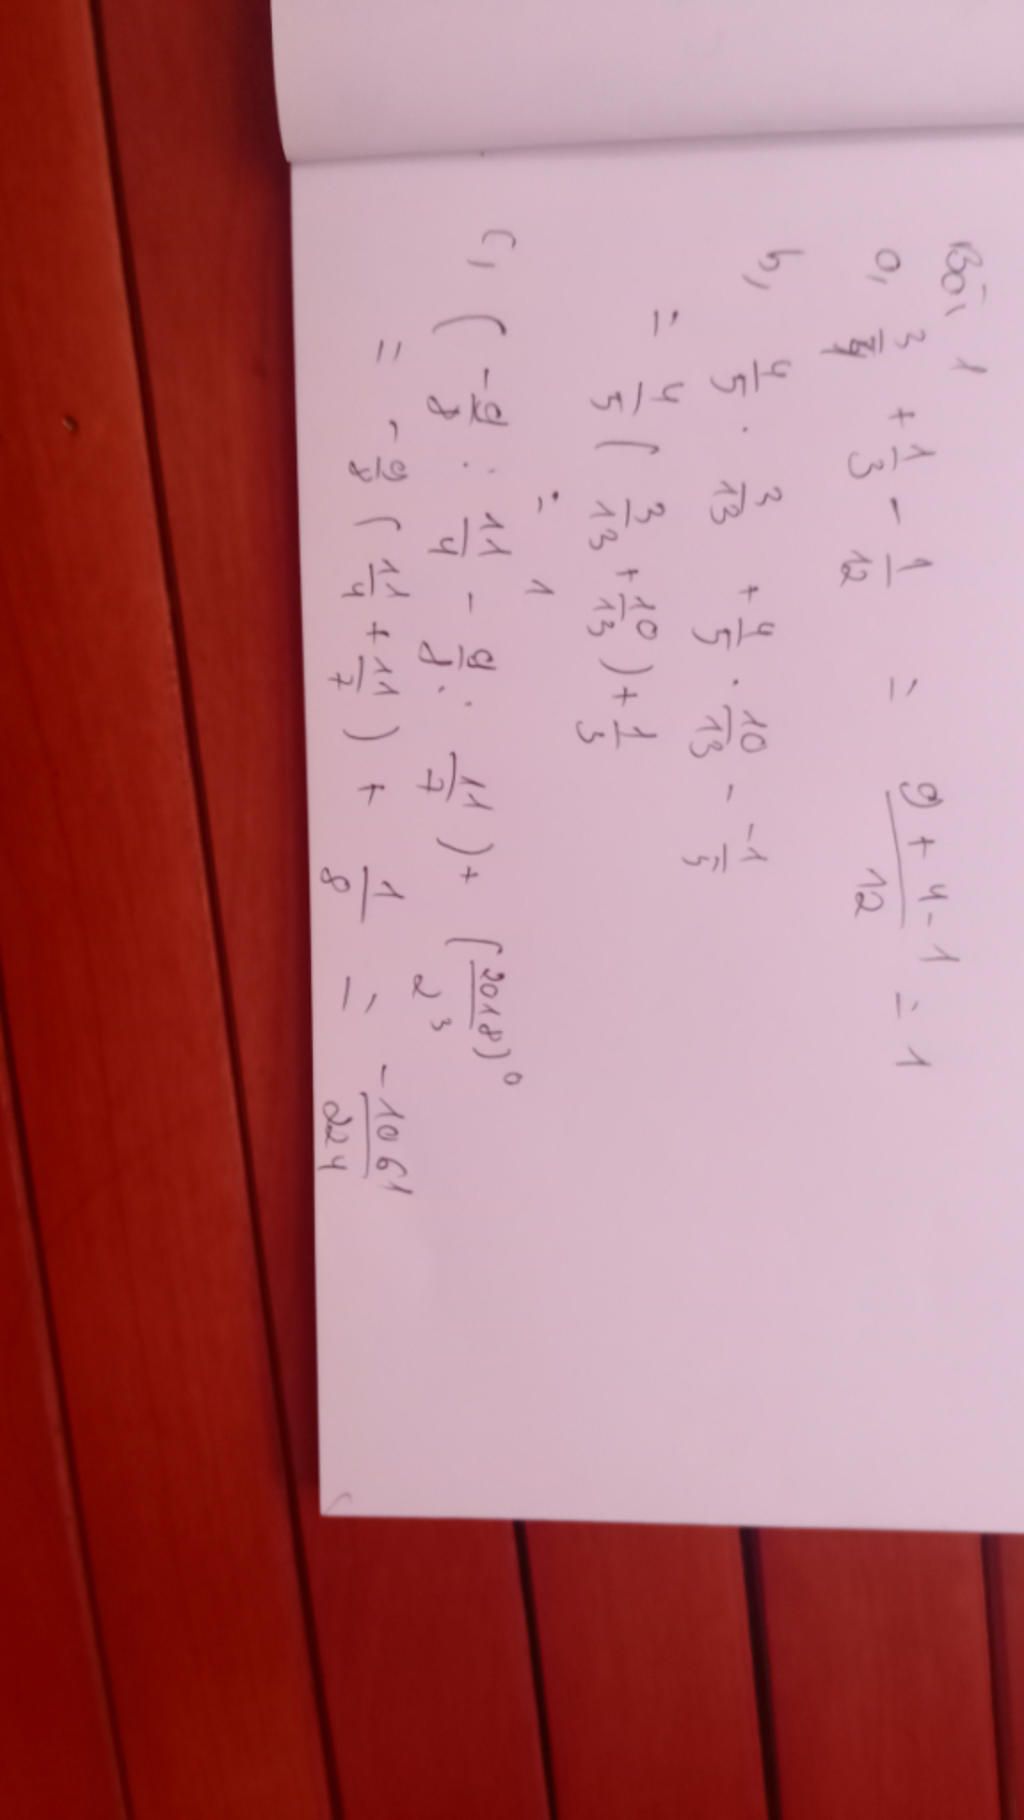 Bài 1
a, 3/4 + 1/3 - 1/12 = (9+4-1)/12 = 1
b, 4/5 . 3/13 + 4/5 . 10/13 - -1/5
= 4/5 ( 3/13 + 10/13 ) + 1/5
= 1
c, ( -9/8 : 11/4 - 9/8 : 11/7 ) + (2018)⁰/2³
= -9/8 ( 11/4 + 11/7 ) + 1/8 = -1061/224